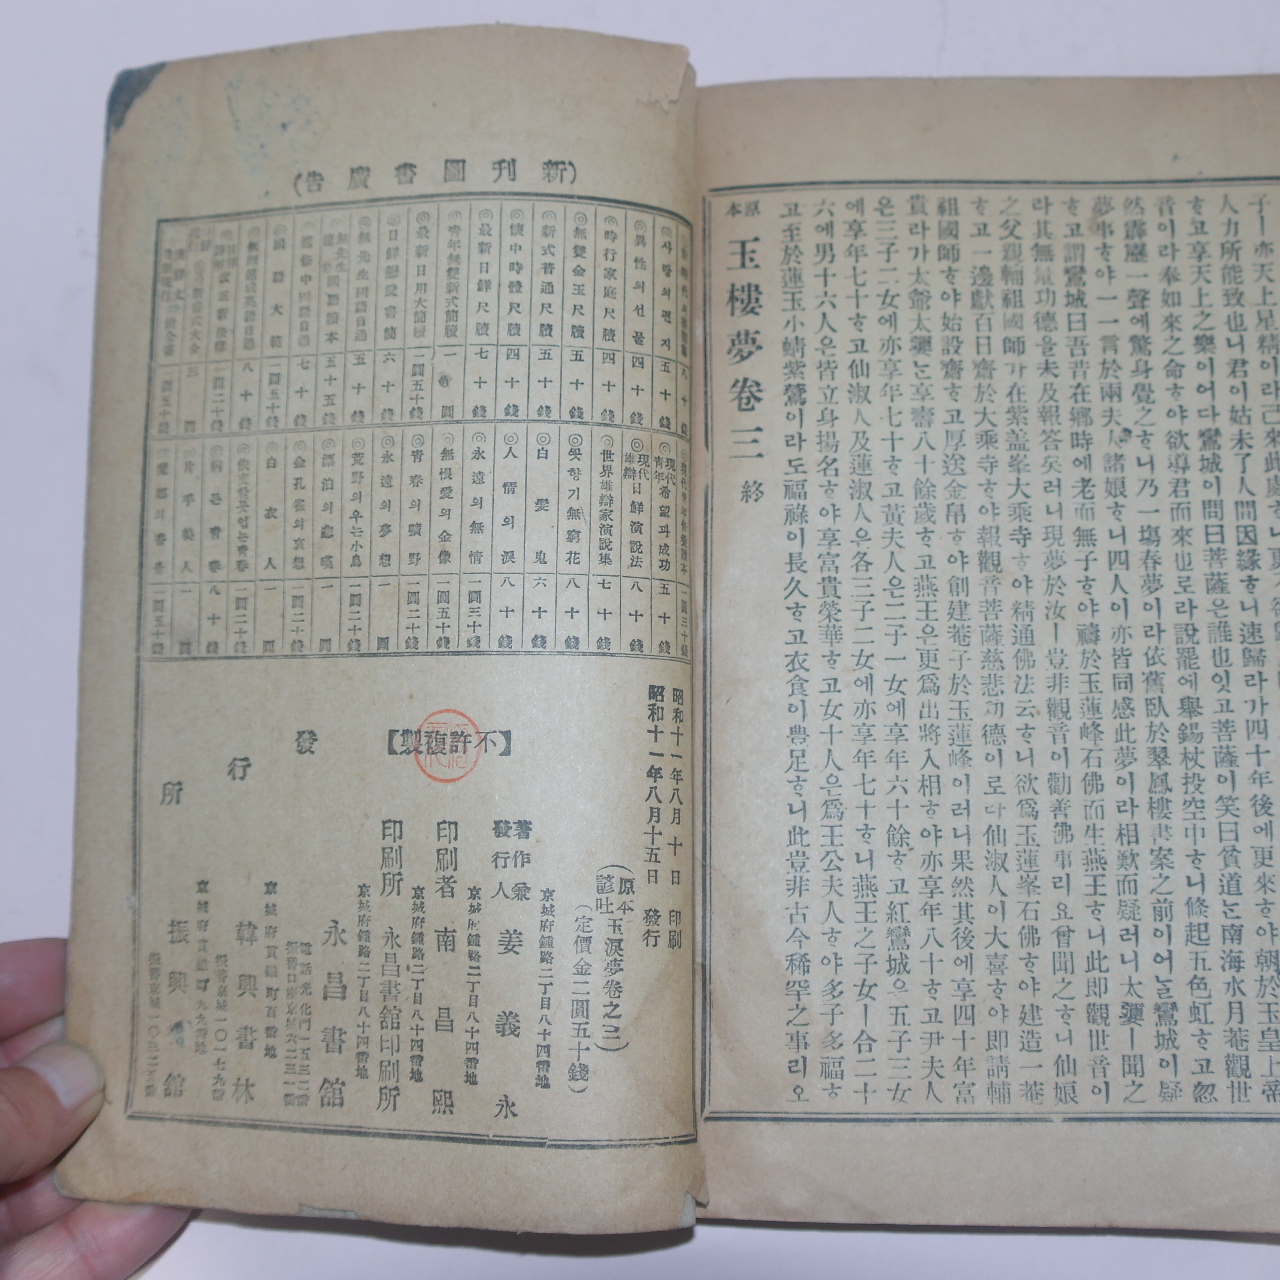 人力所能致也니君이姑未了人間因緣ᄒᆞ니速歸라가四十年後에更來ᄒᆞ야朝於玉皇上帝
ᄒᆞ고享天上之樂이어다鸞城이問曰菩薩은誰也잇고菩薩이笑曰貧道ᄂᆞᆫ南海水月菴觀世
音이라奉如來之命ᄒᆞ야欲導君而來也로라說罷에擧錫杖投空中ᄒᆞ니倏起五色虹ᄒᆞ고忽
然霹靂一聲에驚身覺之ᄒᆞ니乃一塲春夢이라依舊臥於翠鳳樓書案之前이어ᄂᆞᆯ鸞城이疑
夢事ᄒᆞ야一一言於兩夫人諸娘ᄒᆞ니四人이亦皆同感此夢이라相歎而疑러니太㜮ㅣ聞之
ᄒᆞ고謂鸞城曰吾昔在鄕時에老而無子ᄒᆞ야禱於玉蓮峰石佛而生燕王ᄒᆞ니此即觀世音이
라其無量功德을未及報答矣러니現夢於汝ㅣ豈非觀音이勸善佛事리요曾聞之ᄒᆞ니仙娘
之父親輔祖國師가在紫盖峯大乘寺ᄒᆞ야精通佛法云ᄒᆞ니欲爲玉蓮峯石佛ᄒᆞ야建造一菴
ᄒᆞ고一邊獻百日齋於大乘寺ᄒᆞ야報觀音菩薩慈悲功德이로다仙淑人이大喜ᄒᆞ야即請輔
祖國師ᄒᆞ야始設齋ᄒᆞ고厚送金帛ᄒᆞ야創建菴子於玉蓮峰이러니果然其後에享四十年富
貴라가太爺太㜮ᄂᆞᆫ享壽八十餘歲ᄒᆞ고燕王은更爲出將入相ᄒᆞ야亦享年八十ᄒᆞ고尹夫人
은三子二女에亦享年七十ᄒᆞ고黃夫人은二子一女에享年六十餘ᄒᆞ고紅鸞城은五子三女
에享年七十ᄒᆞ고仙淑人及蓮淑人은各三子二女에亦享年七十ᄒᆞ니燕王之子女ㅣ合二十
六에男十六人은皆立身揚名ᄒᆞ야享富貴榮華ᄒᆞ고女十人은爲王公夫人ᄒᆞ야多子多福ᄒᆞ
고至於蓮玉小蜻紫鸞이라도福祿이長久ᄒᆞ고衣食이豊足ᄒᆞ니此豈非古今稀罕之事리오
原本 玉樓夢卷三 終
(新刊圖書廣告)
◎사랑의편지 五十錢
◎異性의선물 四十錢
◎時行家庭尺牘 四十錢
◎無雙金玉尺牘 五十錢
◎新式普通尺牘 五十錢
◎懷中時體尺牘 四十錢
◎最新日鮮尺牘 七十錢
◎靑年無雙新式簡牘 一圓
◎最新日用大簡牘 一圓五十錢
◎日鮮戀愛書簡 六十錢
◎無先生國語自通 五十錢
◎現代靑年希望과成功 五十錢
◎現代日鮮演說法雄辯 八十錢
◎世界雄辯家演說集 七十錢
◎꼿향기無窮花 八十錢
◎白髮鬼 六十錢
◎人情의淚 八十錢
◎永遠의無情 一圓三十錢
◎無恨愛의金像 一圓五十錢
◎靑春의曠野 一圓二十錢
◎永遠의夢想 一圓
◎荒野의우는小鳥 一圓二十錢
◎漂泊의悲嘆 一圓
◎金孔雀의哀想 一圓二十錢
◎白衣人 一圓
◎病든靑春 八十錢
◎片手美人 一圓
昭和十一年八月十日 印刷
昭和十一年八月十五日 發行
(原本諺吐玉淚夢卷之三)
(定價金二圓五十錢)
【不許複製】
京城府鍾路二丁目八十四番地
著作兼發行人 姜義永
京城府鍾路二丁目八十四番地
印刷者 南昌熙
京城府鍾路二丁目八十四番地
印刷所 永昌書舘印刷所
發行所
永昌書舘
電話光化門一五三二番
京城府貫鐵町百番地
韓興書林
京城府貫鐵町九九番地
振興書舘